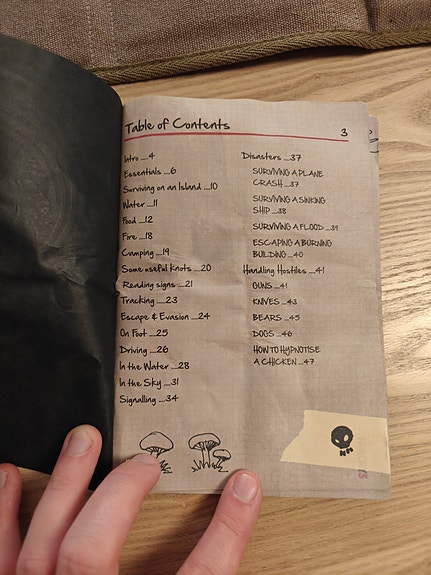 Table of Contents
3
Intro ....4
Essentials ....6
Surviving on an Island ....10
Water ....11
Food ....12
Fire ....18
Camping ....19
Some useful knots ....20
Reading signs ....21
Tracking ....23
Escape & Evasion ....24
On Foot ....25
Driving ....26
In the Water ....28
In the Sky ....31
Signalling ....34
Disasters ....37
SURVIVING A PLANE
CRASH ....37
SURVIVING A SINKING
SHIP ....38
SURVIVING A FLOOD ....39
ESCAPING A BURNING
BUILDING ....40
Handling Hostiles ....41
GUNS ....41
KNIVES ....43
BEARS ....45
DOGS ....46
HOW TO HYPNOTISE
A CHICKEN ....47